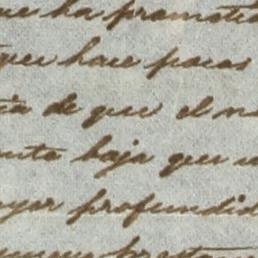 ue ha promotid
que hace pocos
ia de que el n
nta baja que
yor profundid